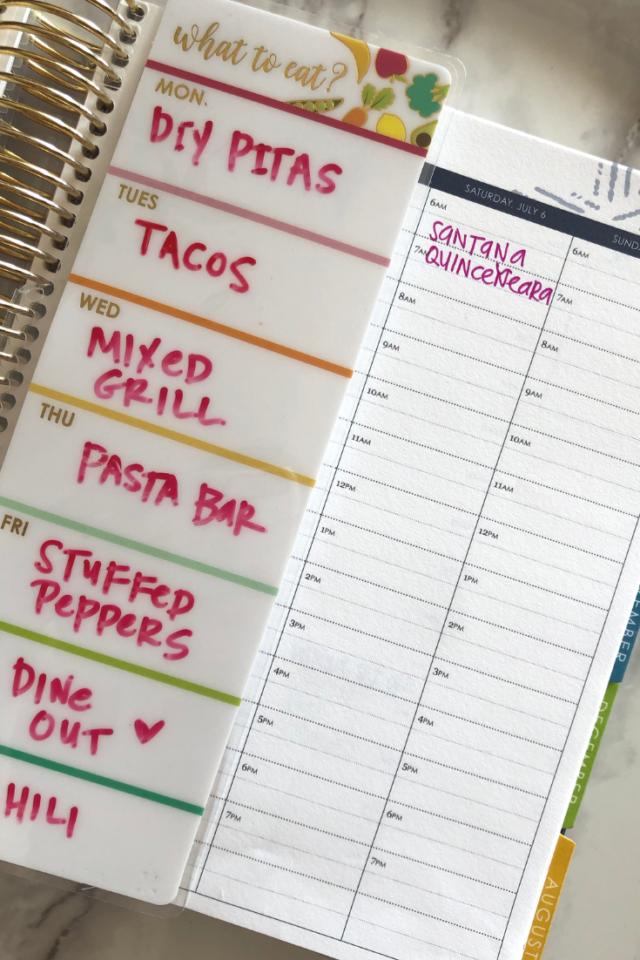 what to eat?
MON.
DIY PITAS
TUES
TACOS
WED
MIXED
GRILL
THU
PASTA BAR
FRI
STUFFED
PEPPERS
DINE
OUT
HILI
SATURDAY, JULY 6
6AM
SANTANA
7AM
QUINCEXEARA
8AM
9AM
10AM
11AM
12PM
1PM
2PM
3PM
4PM
5PM
6PM
7PM
SUND
6AM
7AM
8AM
9AM
10AM
11AM
12PM
1PM
2PM
3PM
4PM
5PM
6PM
7PM
MBER
DECEMBER
AUGUST